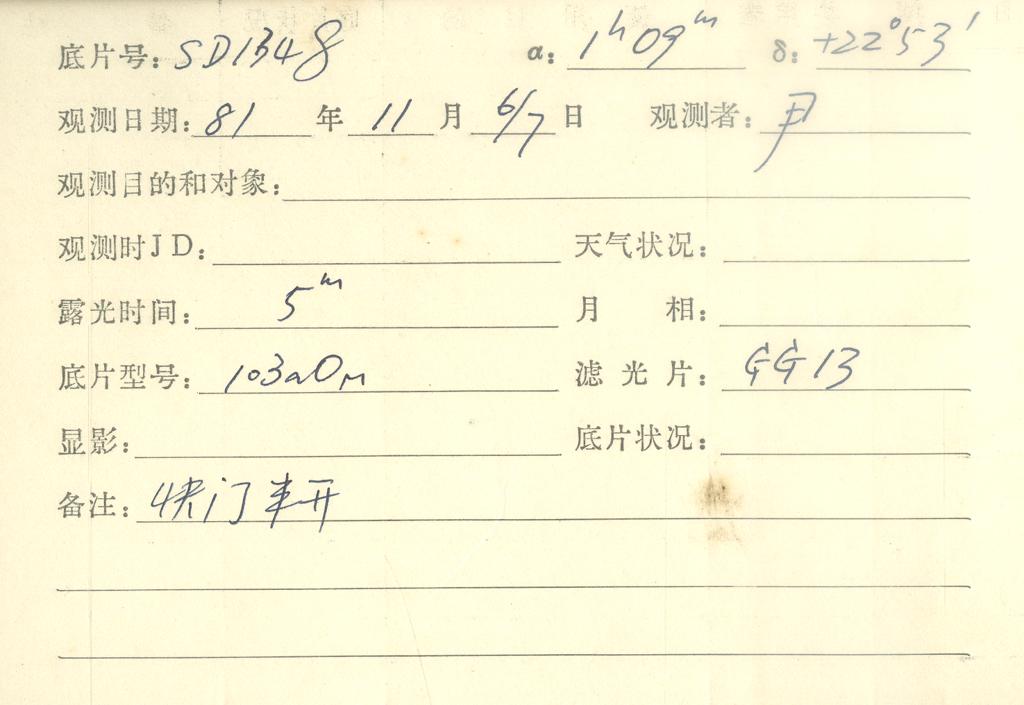 底片号: SD1348 α: 1ʰ09ᵐ δ: +22°53′
观测日期: 81 年 11 月 6/7 日 观测者: 尹
观测目的和对象:
观测时JD: 天气状况:
露光时间: 5ᵐ 月 相:
底片型号: 103aO 滤光片: GG13
显影: 底片状况:
备注: 快门半开